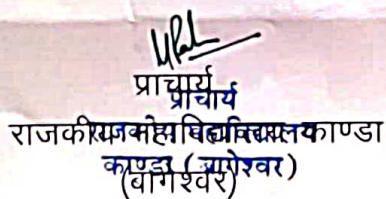 प्राचार्य
प्राचार्य
राजकीय महाविद्यालय काण्डा
काण्डा (बागेश्वर)
(बागेश्वर)